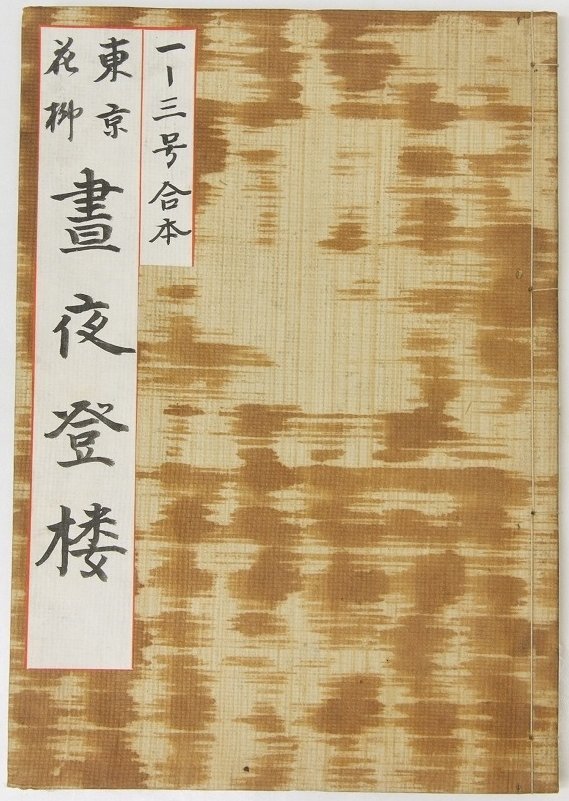 一ー三号合本
東京
花柳
晝夜登楼